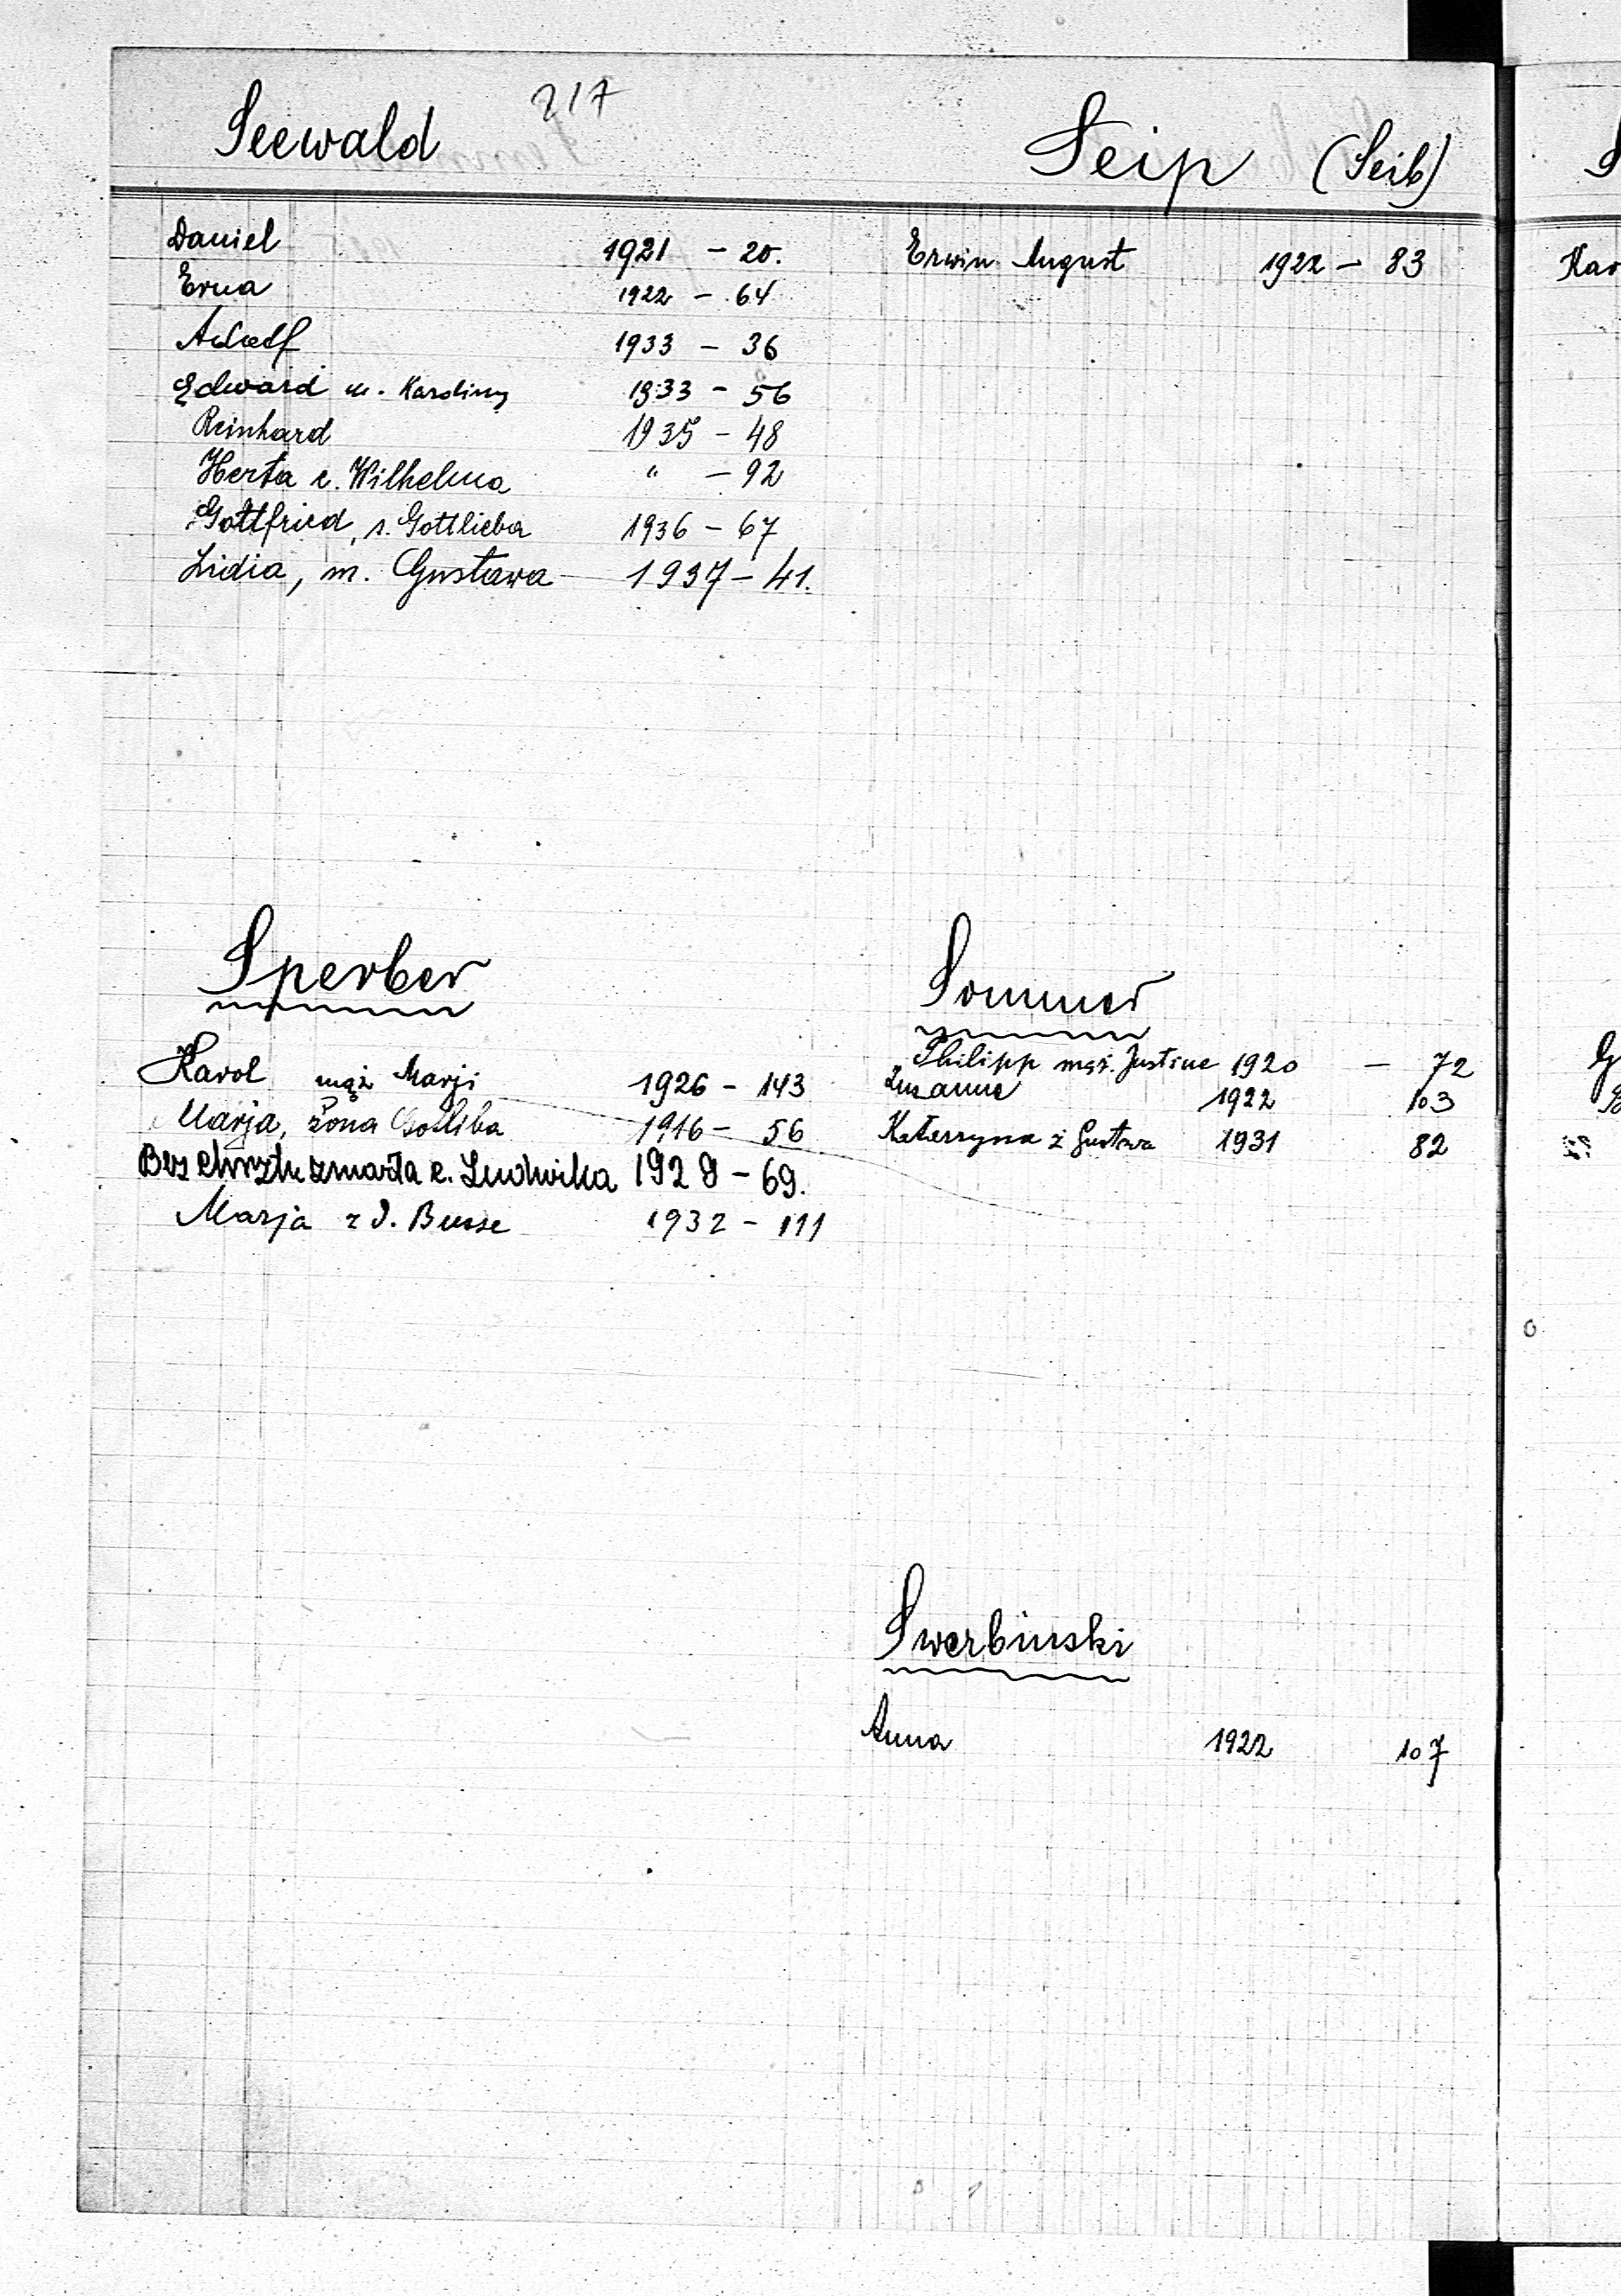 217
Seewald
Daniel 1921 - 20.
Erna 1922 - 64
Adolf 1933 - 36
Edward m. Karoliny 1933 - 56
Reinhard 1935 - 48
Herta c. Wilhelma " - 92
Gottfried, s. Gottlieba 1936 - 67
Lidia, m. Gustawa 1937 - 41.
Seip (Seib)
Erwin August 1922 - 83
Sperber
Karol mąż Marji 1926 - 143
Marja, żona Gotliba 1916 - 56
Bez chrztu zmarła c. Ludwika 1928 - 69.
Marja z d. Busse 1932 - 111
Sommer
Philipp mąż. Justine 1920 - 72
Zuzanna 1922 103
Katarzyna ż Gustawa 1931 82
Swerbinski
Anna 1922 107
Kar
G